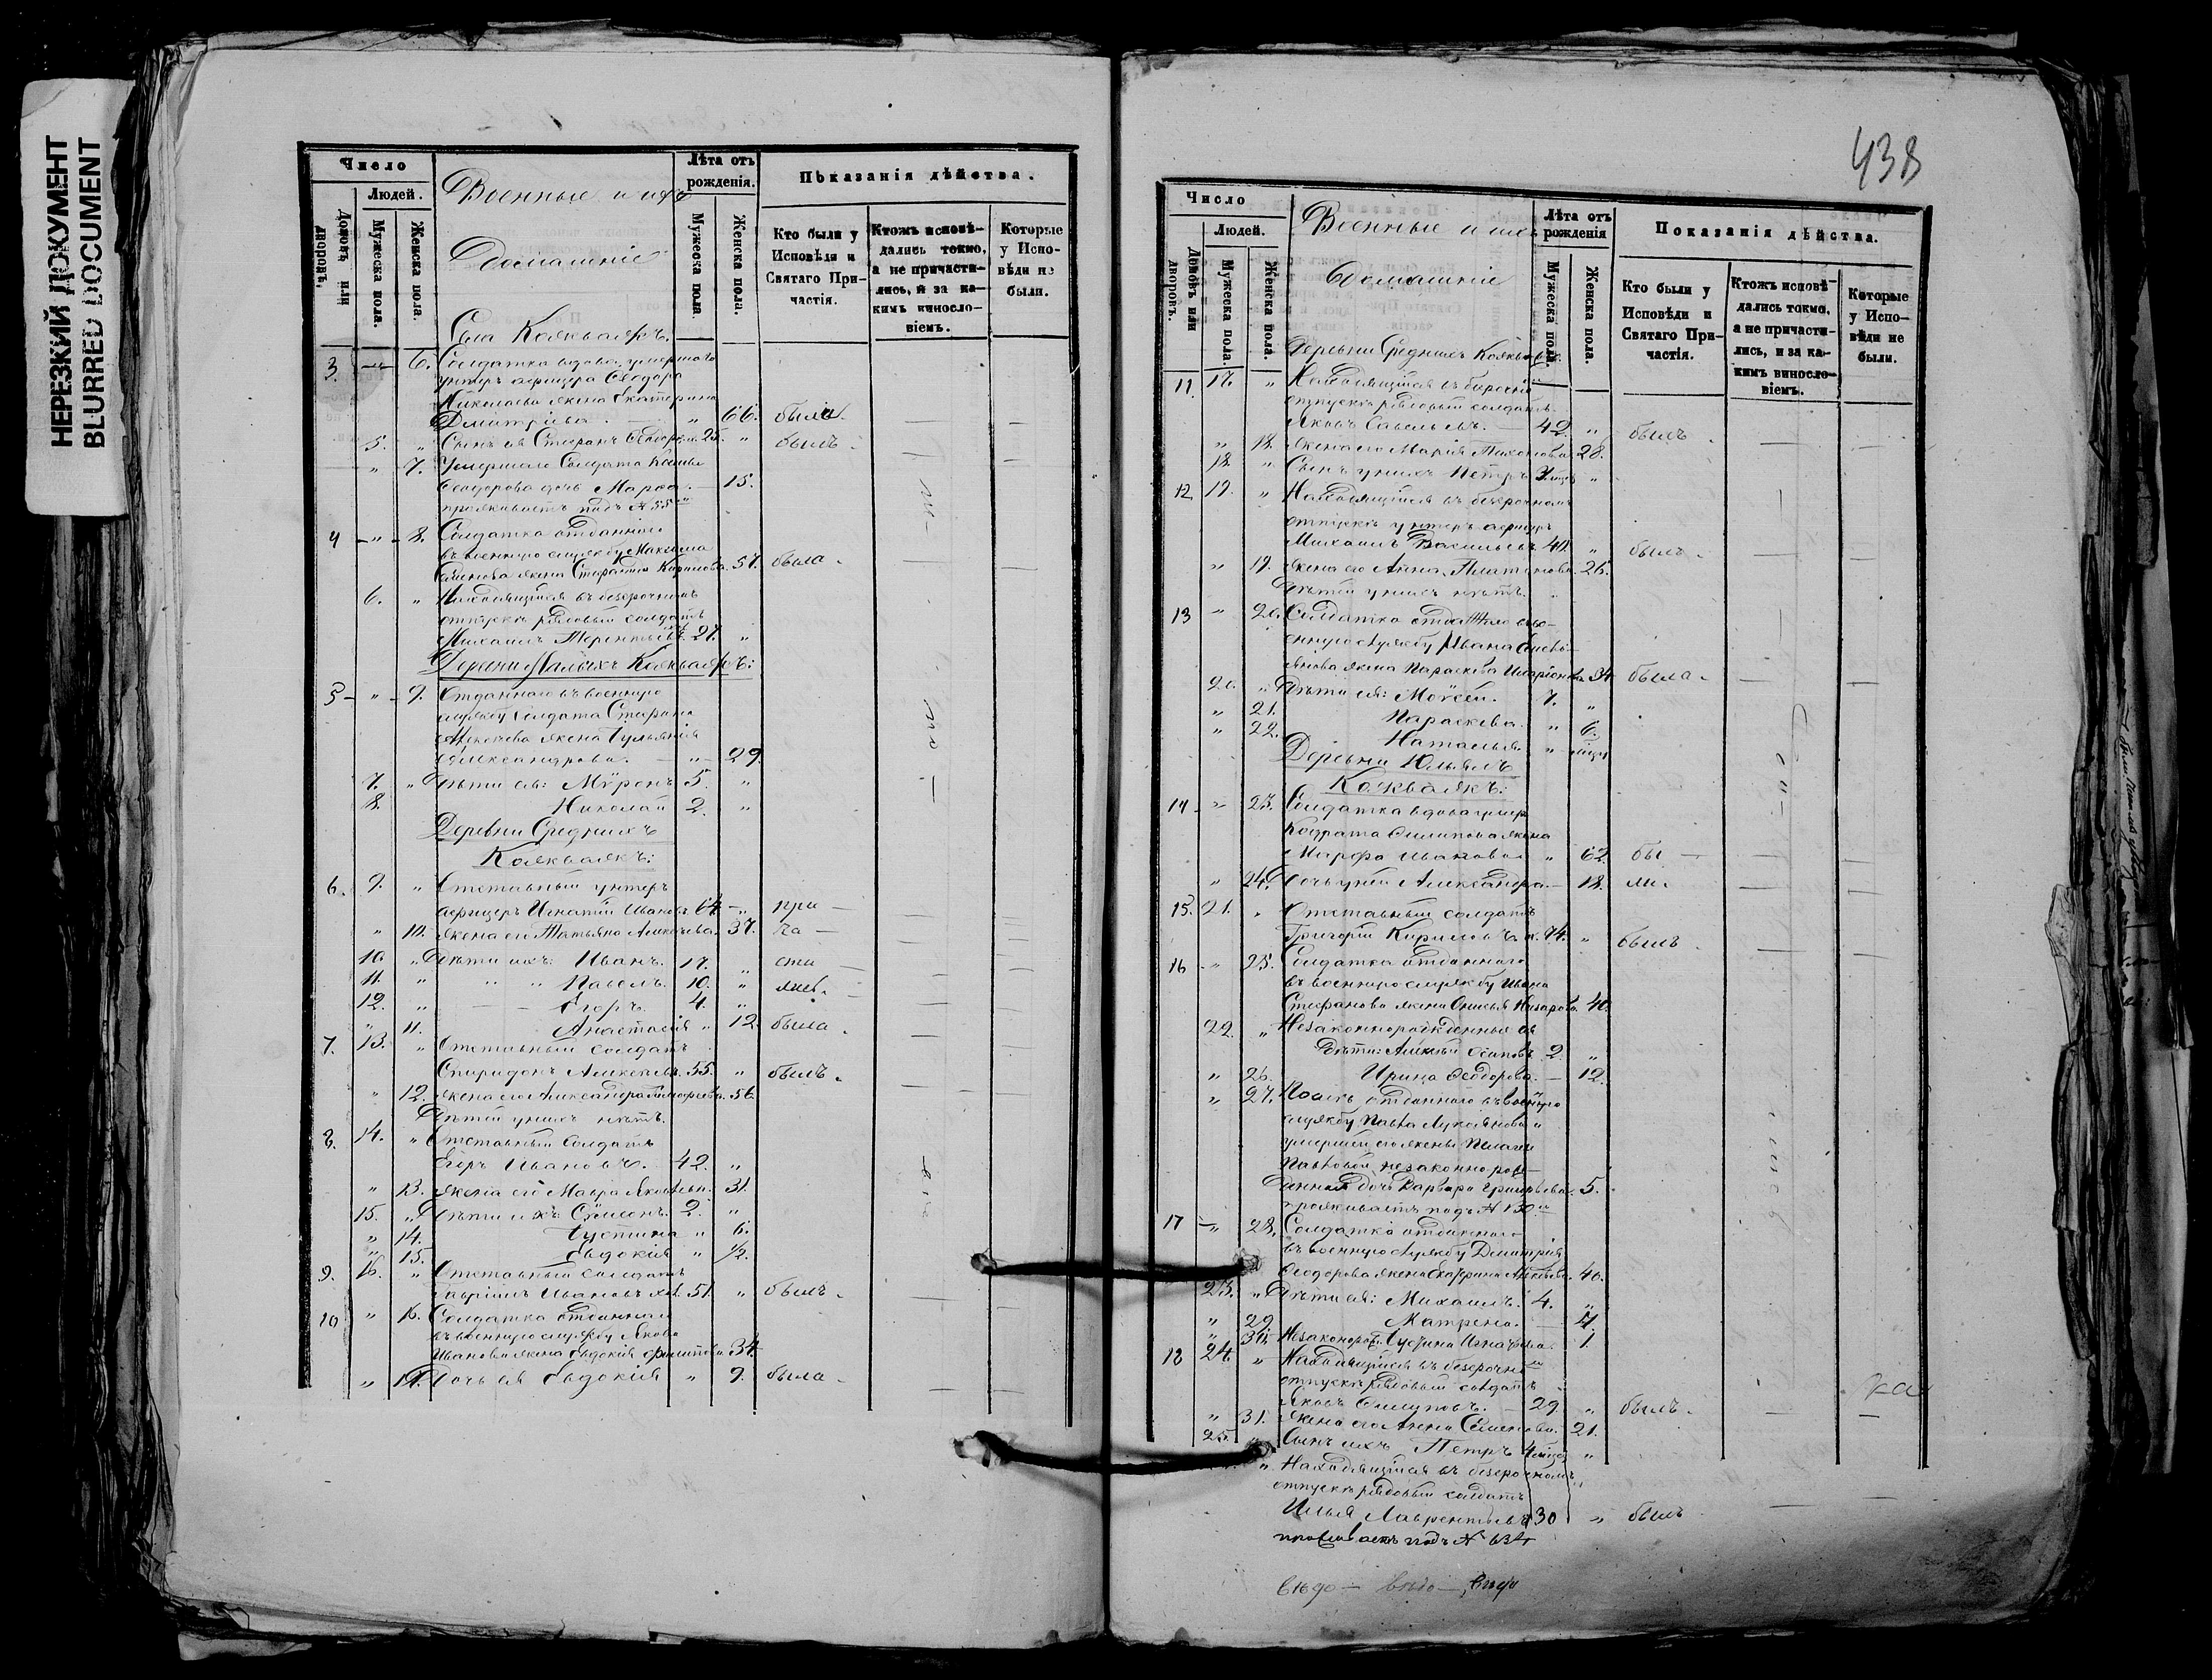 НЕРЕЗКИЙ ДОКУМЕНТ
BLURRED DOCUMENT
Число
Людей.
Домовъ или дворовъ.
Мужеска пола.
Женска пола.
Военные и ихъ
Домашніе
Лѣта отъ рожденія.
Мужеска пола
Женска пола.
Показанія дѣйства.
Кто были у Исповѣди и Святаго Причастія.
Ктожъ исповѣдались токмо, а не причастились, и за какимъ винословіемъ.
Которые у Исповѣди не были.
Села
3. " 6. Солдатка вдова умершаго
унтеръ афицера Ѳеодора
Николаева жена Екатерина
Дмитріева. " 66. была
5. " Сынъ ея Стефанъ 25. " былъ
" 7. Умершаго Солдата
Ѳеодорова дочь 15.
проживаетъ подъ № 55
4 " 8. Солдатка отданнаго
въ военную службу Максима
жена 57. была
6. " Находящійся въ безсрочномъ
отпускѣ рядовый солдатъ
Михаилъ Терентьевъ 27. "
Деревни Малыхъ
5 " 9. Отданнаго въ военную
службу Солдата Стефана
Алексѣева жена Іульянія
Александрова. " 29.
7. " Дѣти ея: Мѵронъ 5. "
8. Николай 2. "
Деревни Среднихъ
6. 9. " Отставный унтеръ
афицеръ Игнатій Ивановъ 64. " при
" 10. жена его Татьяна Алексѣева. 37. ча
10. " Дѣти ихъ: Иванъ. 17. " сти
11. " " " Павелъ. 10. "
12. " Егоръ. 4. "
" 11. Анастасія " 12. была
7. 13. " Отставный солдатъ
Спиридонъ Алексѣевъ. 55. " былъ.
" 12. жена его Александра Тимофеева. 56.
Дѣтей у нихъ нѣтъ.
8. 14. " Отставный солдатъ
Егоръ Ивановъ. 42. "
" 13. жена его Мавра 31.
15. " Дѣти ихъ: Сѵмеонъ. 2. "
" 14. Іустина " 6.
" 15. Евдокія " 1/2.
9. 16. " Отставный солдатъ
Гавріилъ Ивановъ 51. " былъ.
10 " 16. Солдатка отданнаго
въ военную службу Якова
Иванова жена Евдокія Филипова. 34.
" 17. Дочь ея Евдокія " 9. была
438
Число
Людей.
Домовъ или дворовъ.
Мужеска пола.
Женска пола.
Военные и ихъ
Домашніе
Лѣта отъ рожденія
Мужеска пола.
Женска пола.
Показанія дѣйства.
Кто были у Исповѣди и Святаго Причастія.
Ктожъ исповѣдались токмо, а не причастились, и за какимъ винословіемъ.
Которые у Исповѣди не были.
Деревни Среднихъ
11 17. " Находящійся въ безсрочн
отпускѣ рядовый солдатъ
Яковъ Савельевъ. 42. " былъ
" 18. жена его Марія Тихонова 28.
18. " Сынъ у нихъ Петръ "
12 19. " Находящійся въ безсрочномъ
отпускѣ унтеръ афицеръ
Михаилъ Васильевъ 40. " былъ.
" 19. жена его Анна Платонова. 26.
Дѣтей у нихъ нѣтъ.
13 " 20. Солдатка отданнаго въ во-
енную службу Ивана
жена Параскева 34 была
20. " Дѣти ея: Моѵсей. 7. "
" 21. Параскева. " 6.
" 22. Наталья. "
Деревни
14 " 23. Солдатка вдова умер
Кодрата Филипова жена
Марфа Иванова " 62. бы
" 24. Дочь у ней Александра. 18. ли.
15. 21. " Отставный солдатъ
Григорій Кириловъ 74. " былъ
16 " 25. Солдатка отданнаго
въ военную службу Ивана
Стефанова жена Онисья Назарова. 40.
22. " Незаконнорожденные ея
дѣти: Алексѣй Осиповъ 2. "
" 26. Ирина Ѳеодорова. 12.
" 27. отданнаго въ военную
службу Павла Лукоянова и
умершей его жены Пелагеи
Павловой незаконнорож-
денная дочь Варвара Григорьева. 5.
проживаетъ подъ № 130
17 " 28. Солдатка отданнаго
въ военную службу Дмитрія
Ѳеодорова жена Екатерина 40.
23. " Дѣти ея: Михаилъ. 4. "
" 29. Матрена. 4.
" 30. Незаконорожд. Іустина Игнатьева. 1.
18 24. " Находящійся въ безсрочн
отпускѣ рядовый солдатъ
Яковъ Филиповъ. 29. " былъ.
" 31. жена его Анна Семенова. 21.
25. " Сынъ ихъ Петръ "
" Находящійся въ безсрочномъ
отпускѣ рядовый солдатъ
Илья Лаврентьевъ 30 " былъ
проживаетъ подъ № 634